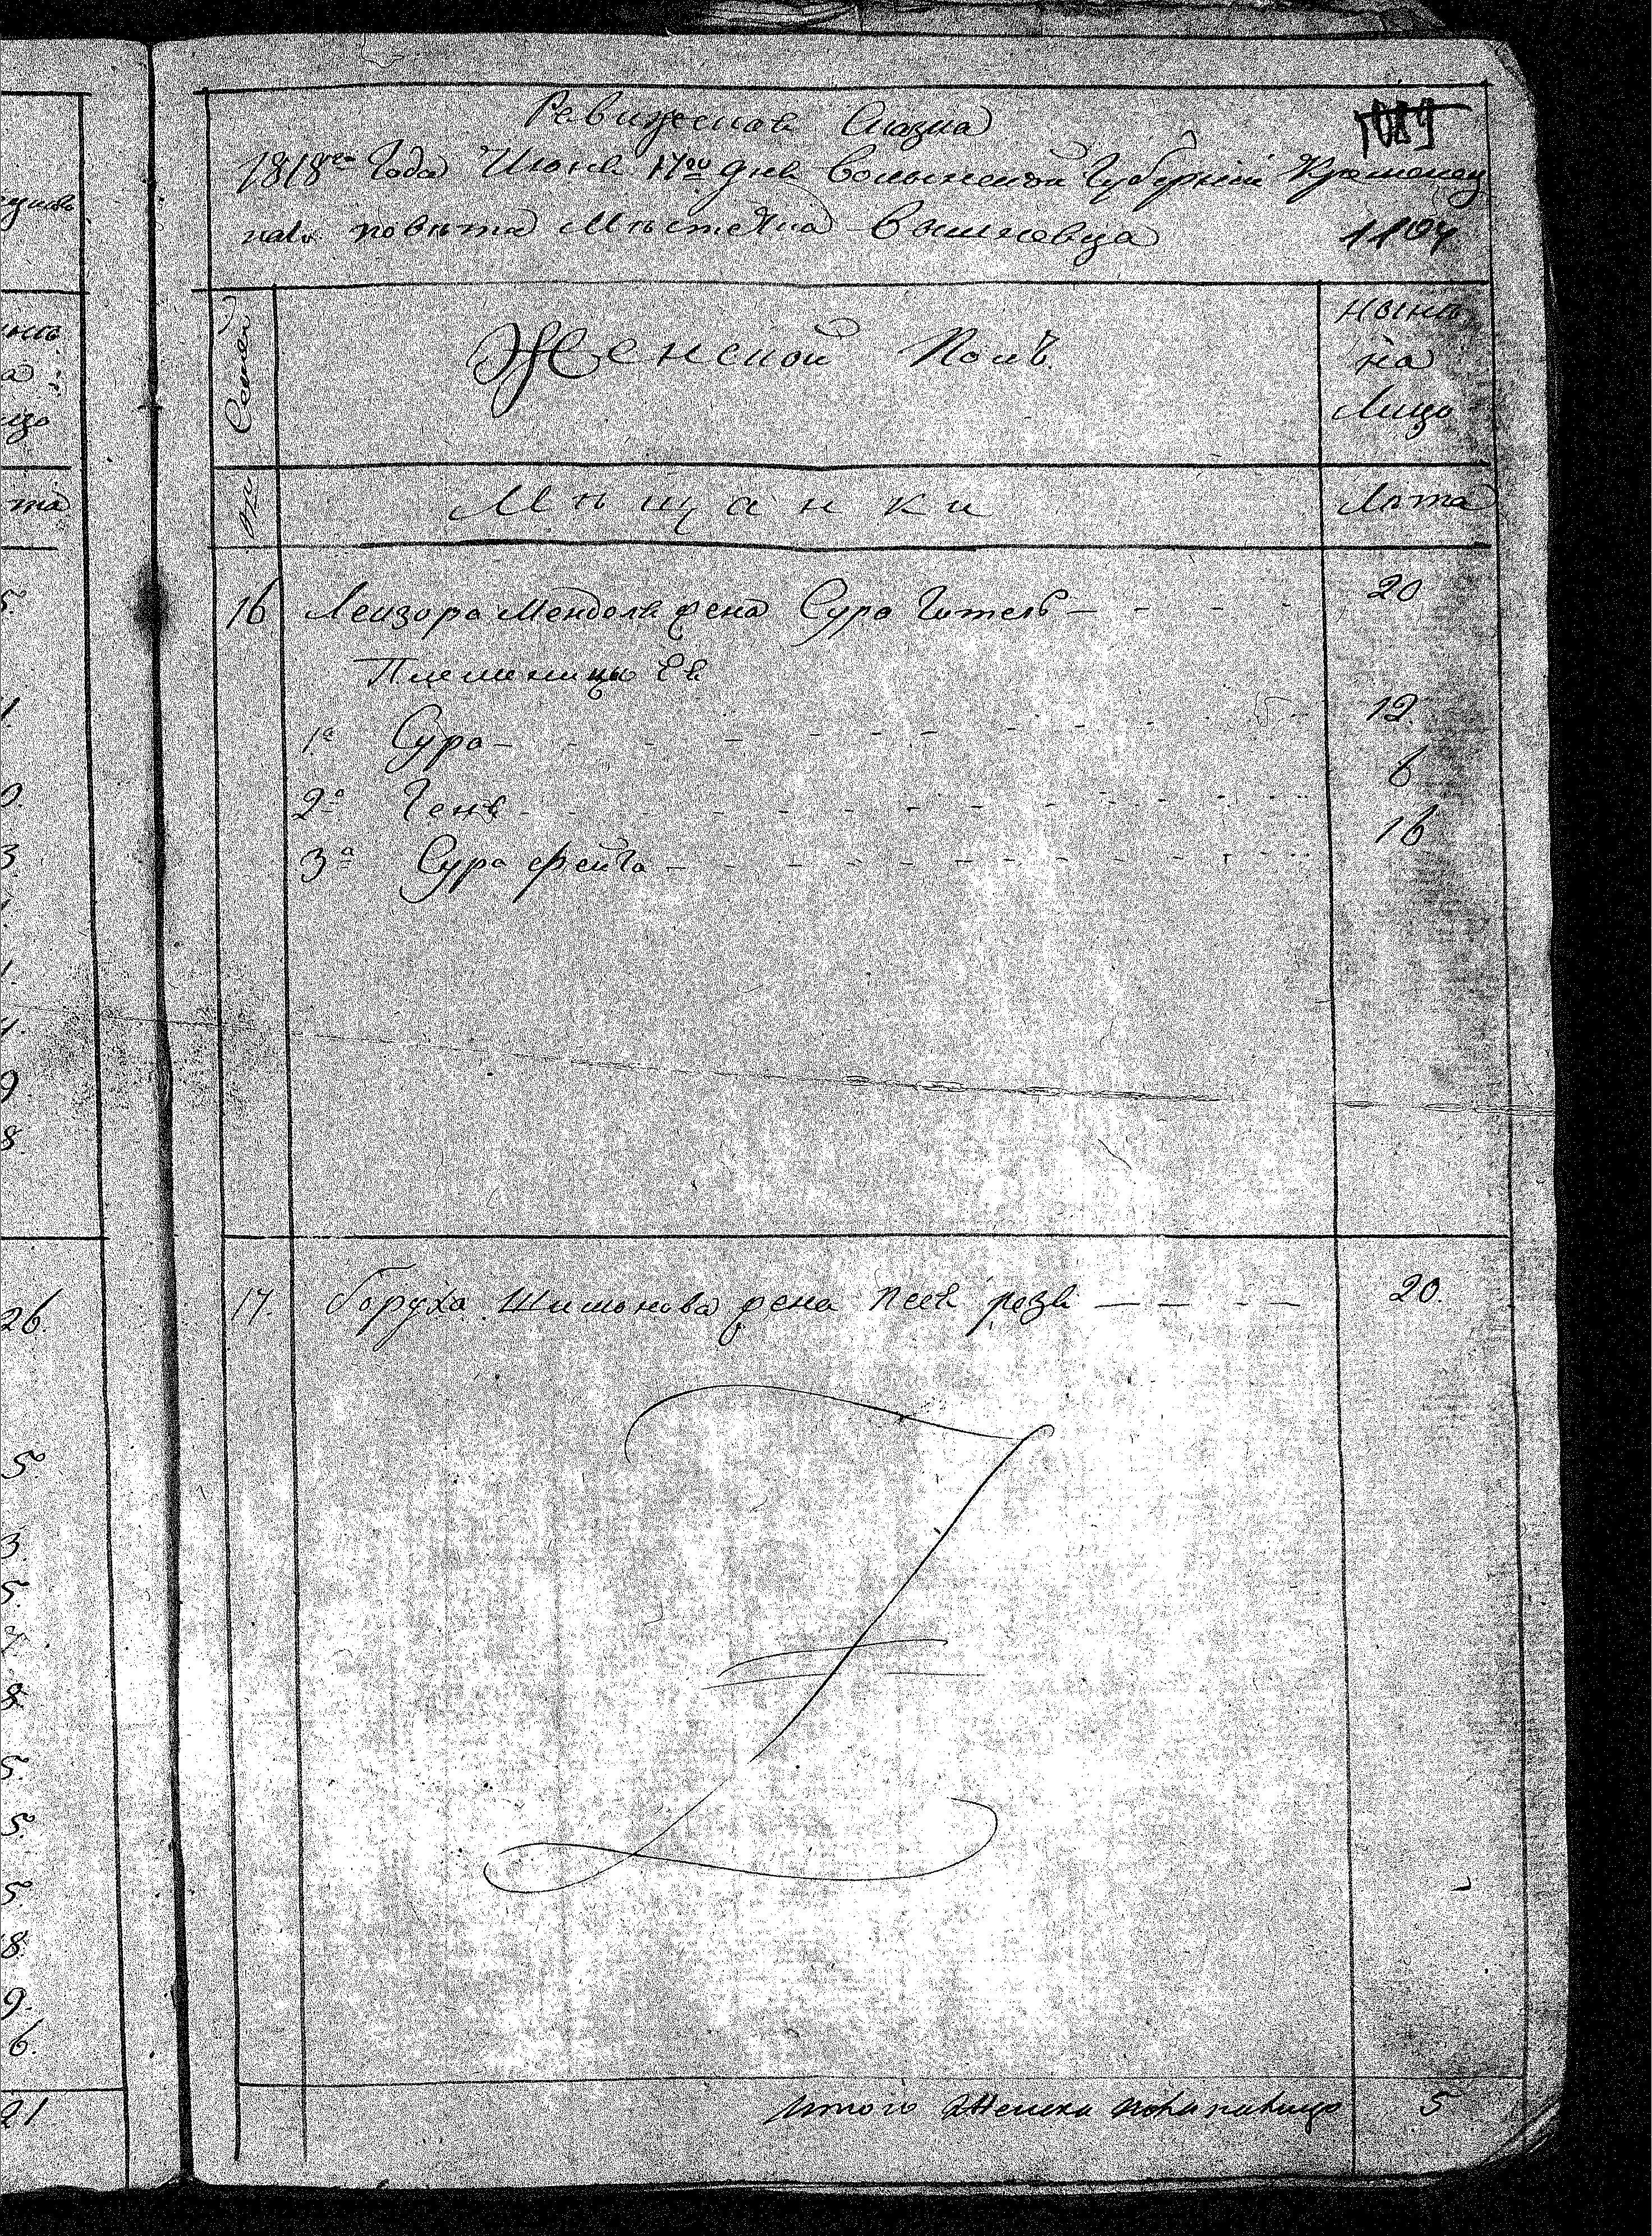 Ревижская Сказка
1089
1818го Года Июня 17го дня Волынской Губернии Кременец
каго повета Мѣстечка Вишневца
1104
Семей
Женской Полъ
Нынѣ
на
Лицо
№
Мѣщанки
Лѣта
16 Лейзора Менделя жена Сура Гитель — - - - 20
Племяницы Ея
1я Сура - - - - 12.
2я Геня - - - - 6
3я Сура Фейга - - - - 16
17. Боруха Шимонова жена Песя резя — — - — 20.
Итого Женска пола налицо 5
5.
1.
0.
3.
1.
4.
9
8.
26.
5.
3.
5.
7.
8.
5.
5.
5.
8.
9.
6.
21